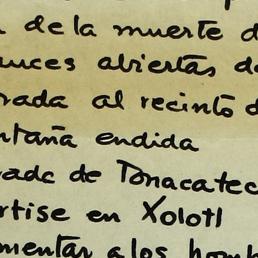 de la muerte d
uces abiertas d
rada al recinto d
ntaña endida
ada de Tonacatec
rtise en Xolotl
mentar a los homb